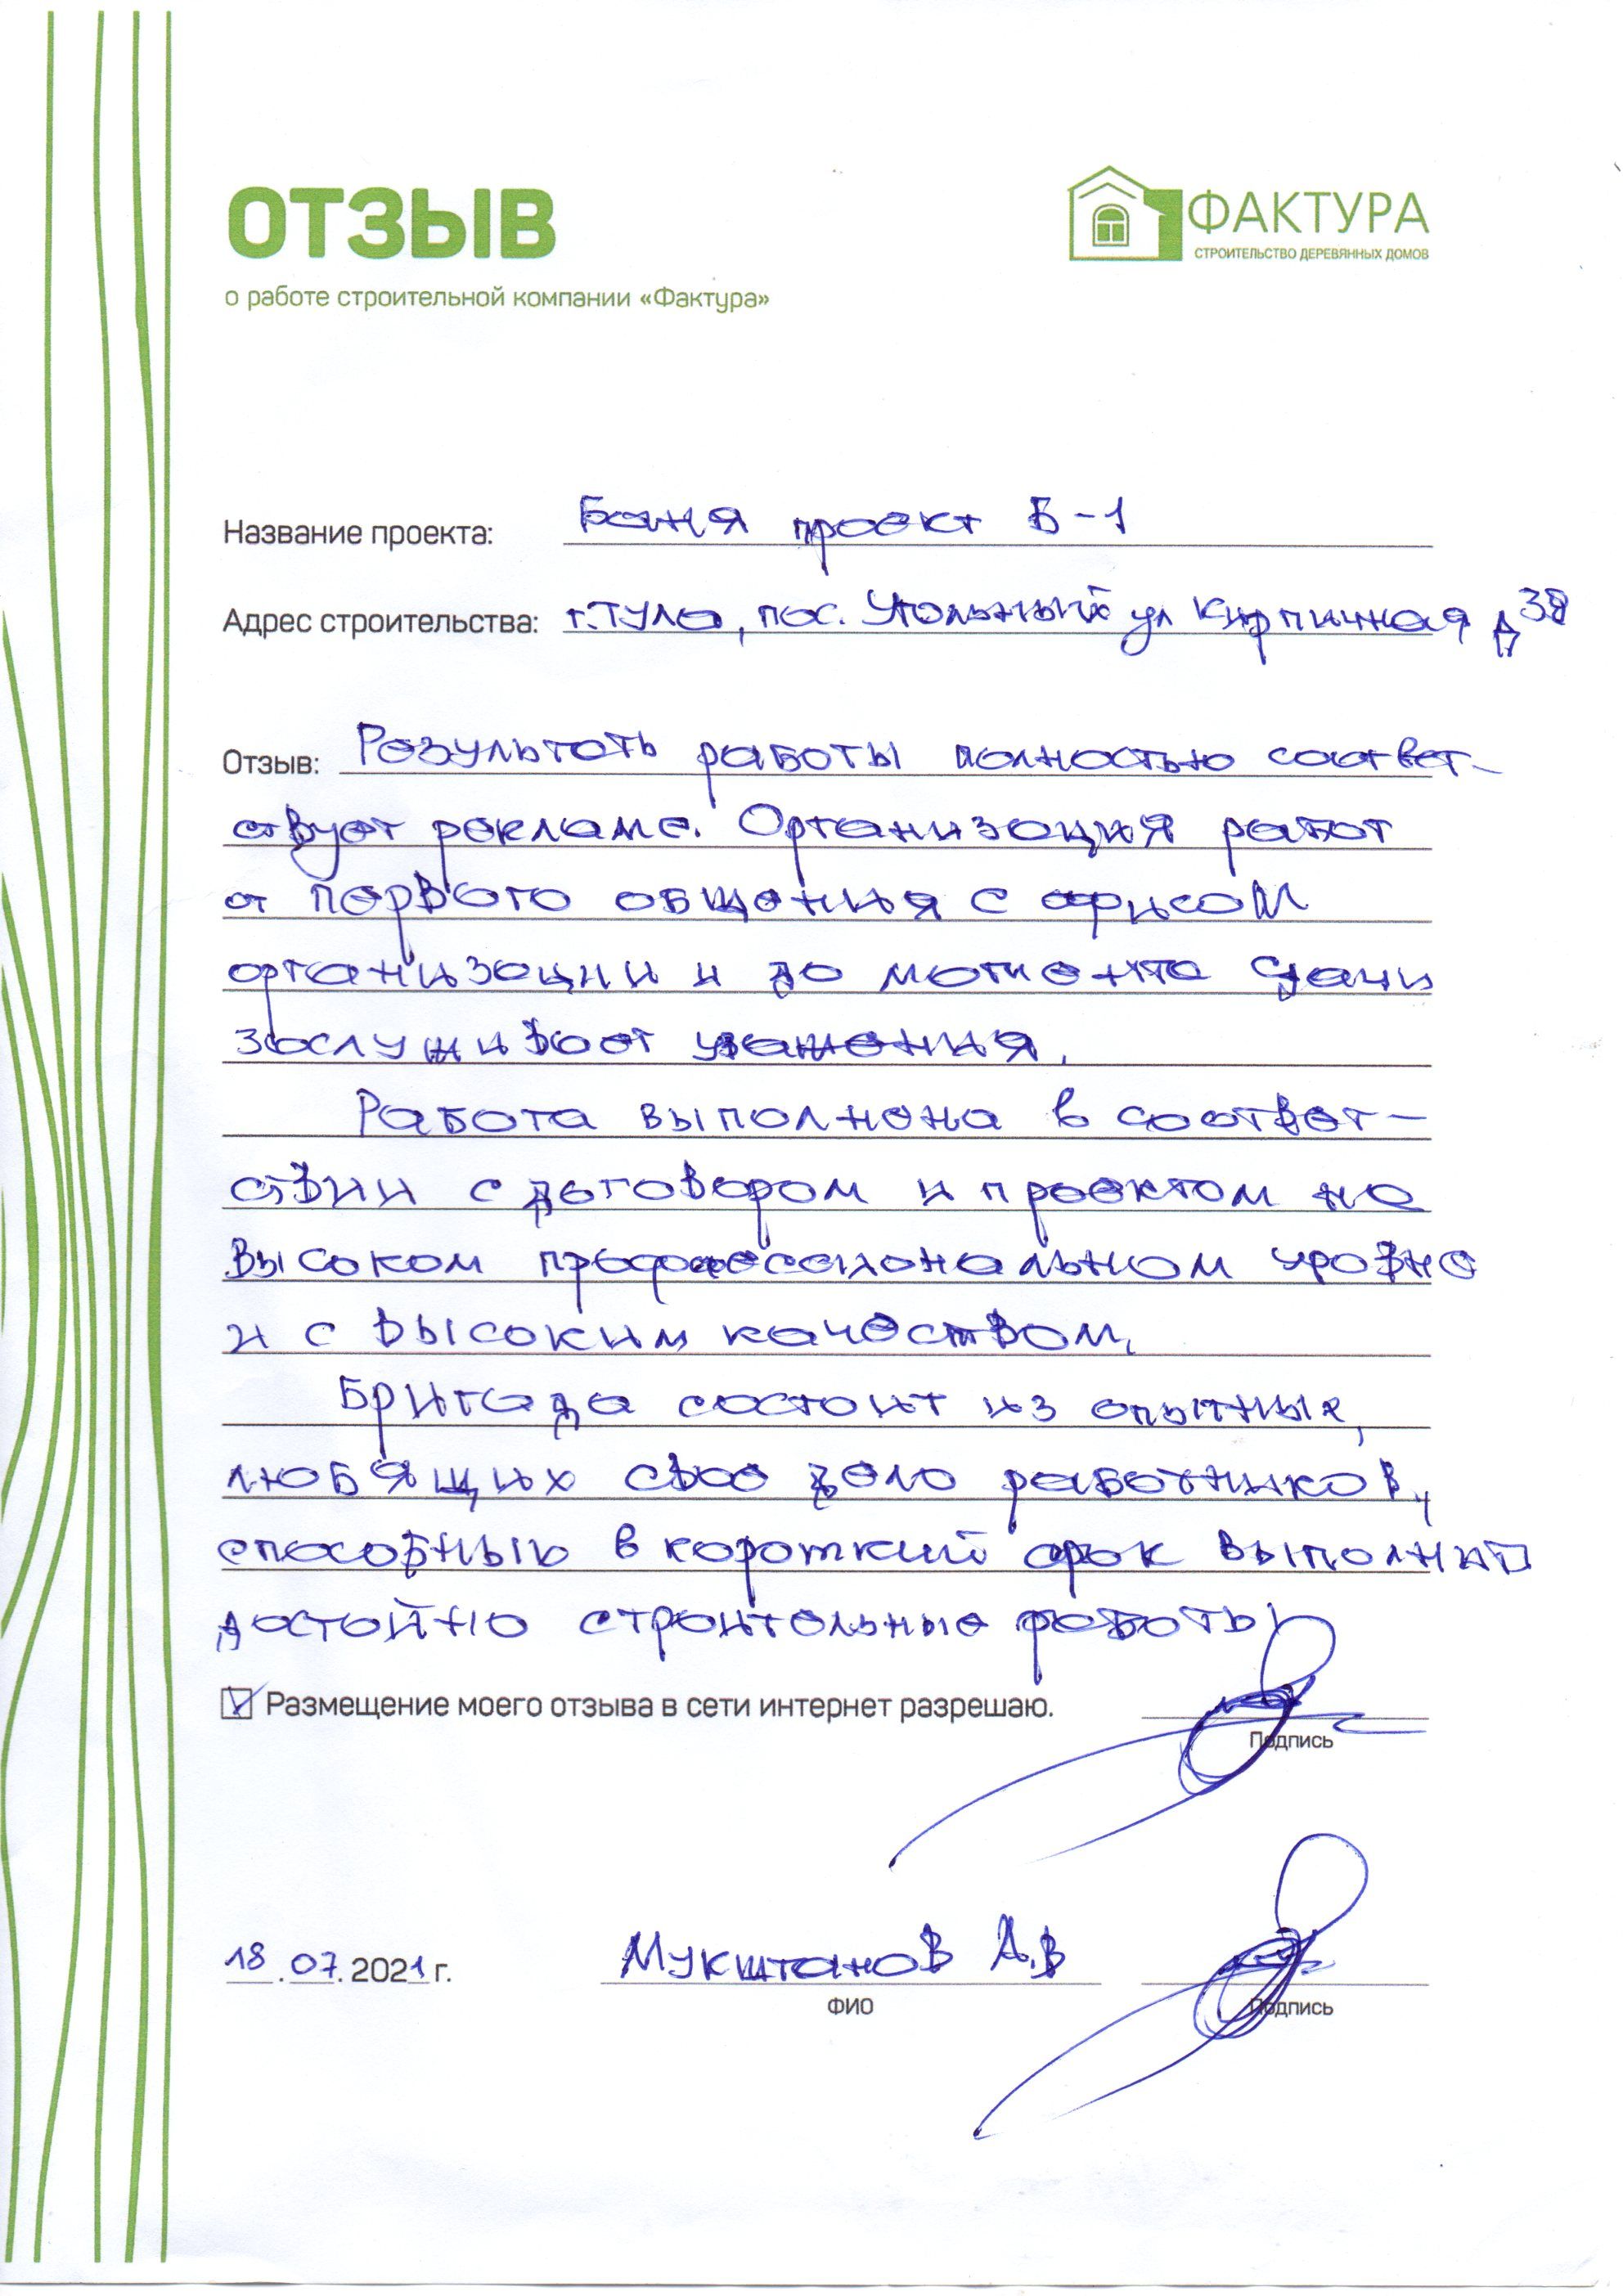 ОТЗЫВ
о работе строительной компании «Фактура»
ФАКТУРА
СТРОИТЕЛЬСТВО ДЕРЕВЯННЫХ ДОМОВ
Название проекта: Баня проект Б-1
Адрес строительства: г.Тула, пос. Угольный ул Кирпичная д 38
Отзыв: Результаты работы полностью соответ-
ствует рекламе. Организация работ
от первого общения с офисом
организации и до момента сдачи
заслуживает уважения.
Работа выполнена в соответ-
ствии с договором и проектом на
высоком профессиональном уровне
и с высоким качеством.
Бригада состоит из опытных,
любящих свое дело работников,
способных в короткий срок выполнить
достойно строительные работы
Размещение моего отзыва в сети интернет разрешаю.
Подпись
18.07.2021 г. Мукштанов А.В
ФИО Подпись